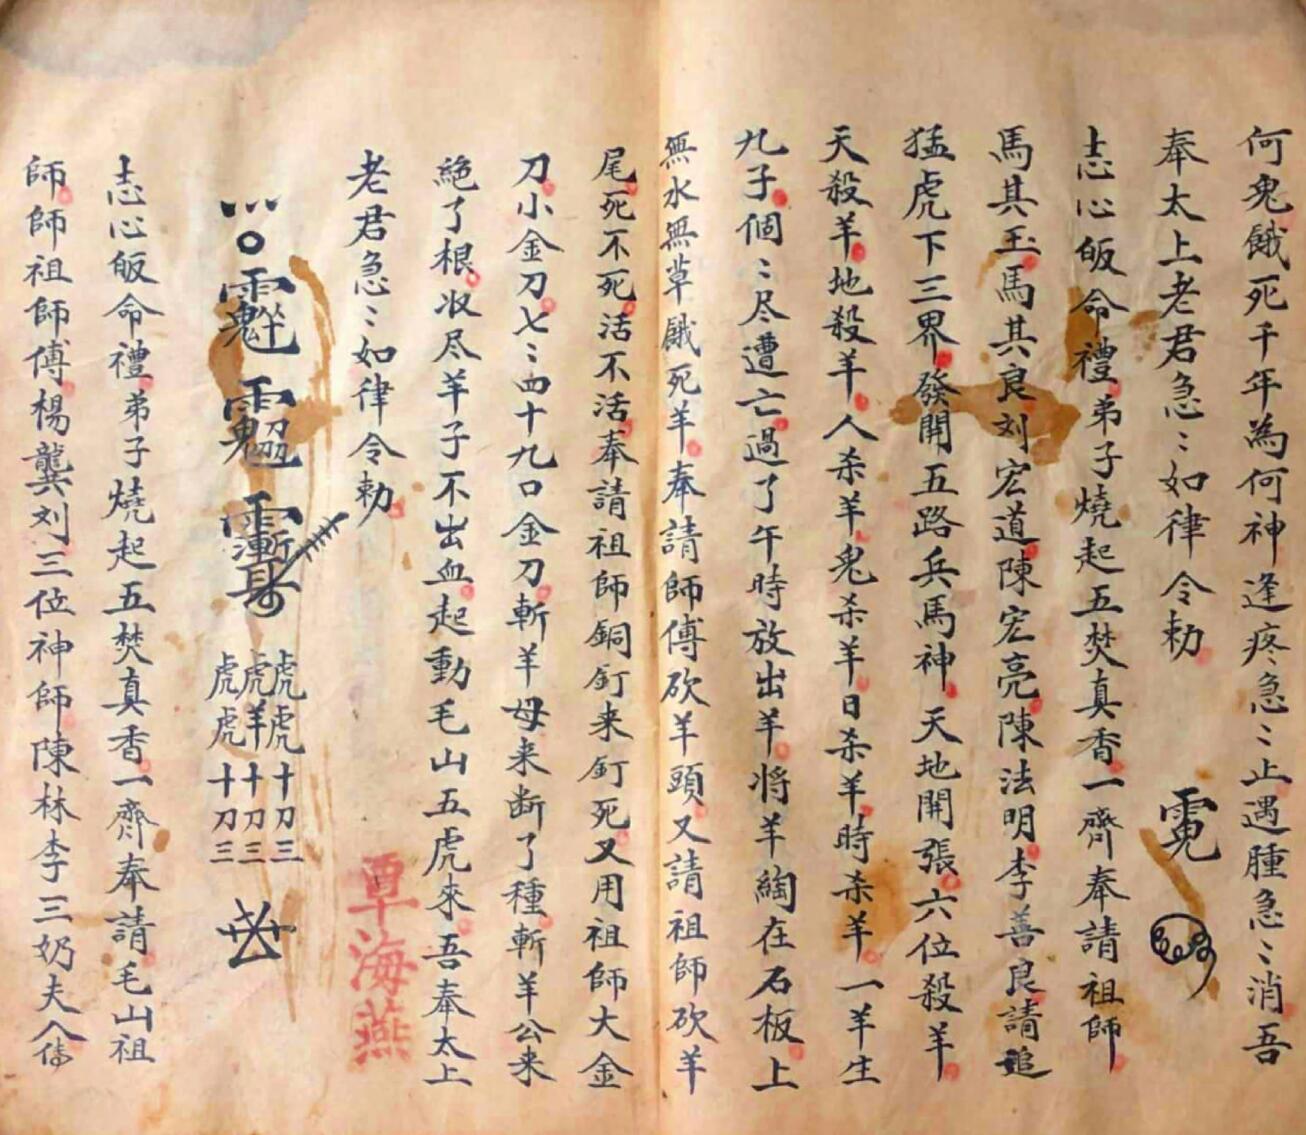 何鬼餓死千年為何神逢疼急〻止遇腫急〻消吾
奉太上老君急〻如律令勅
志心皈命禮弟子燒起五焚真香一齊奉請祖師
馬其玉馬其良刘宏道陳宏亮陳法明李善良請追
猛虎下三界發開五路兵馬神天地開張六位殺羊
天殺羊地殺羊人杀羊鬼杀羊日杀羊時杀羊一羊生
九子個〻尽遭亡過了午時放出羊将羊綯在石板上
無水無草餓死羊奉請師傅砍羊頭又請祖師砍羊
尾死不死活不活奉請祖師銅釘来釘死又用祖師大金
刀小金刀七〻四十九口金刀斬羊母来断了種斬羊公来
絕了根收尽羊子不出血起動毛山五虎來吾奉太上
老君急〻如律令勅
覃海燕
虎虎十刀三
虎羊十刀三
虎虎十刀三
志心皈命禮弟子燒起五焚真香一齊奉請毛山祖
師師祖師傅楊龔刘三位神師陳林李三奶夫人